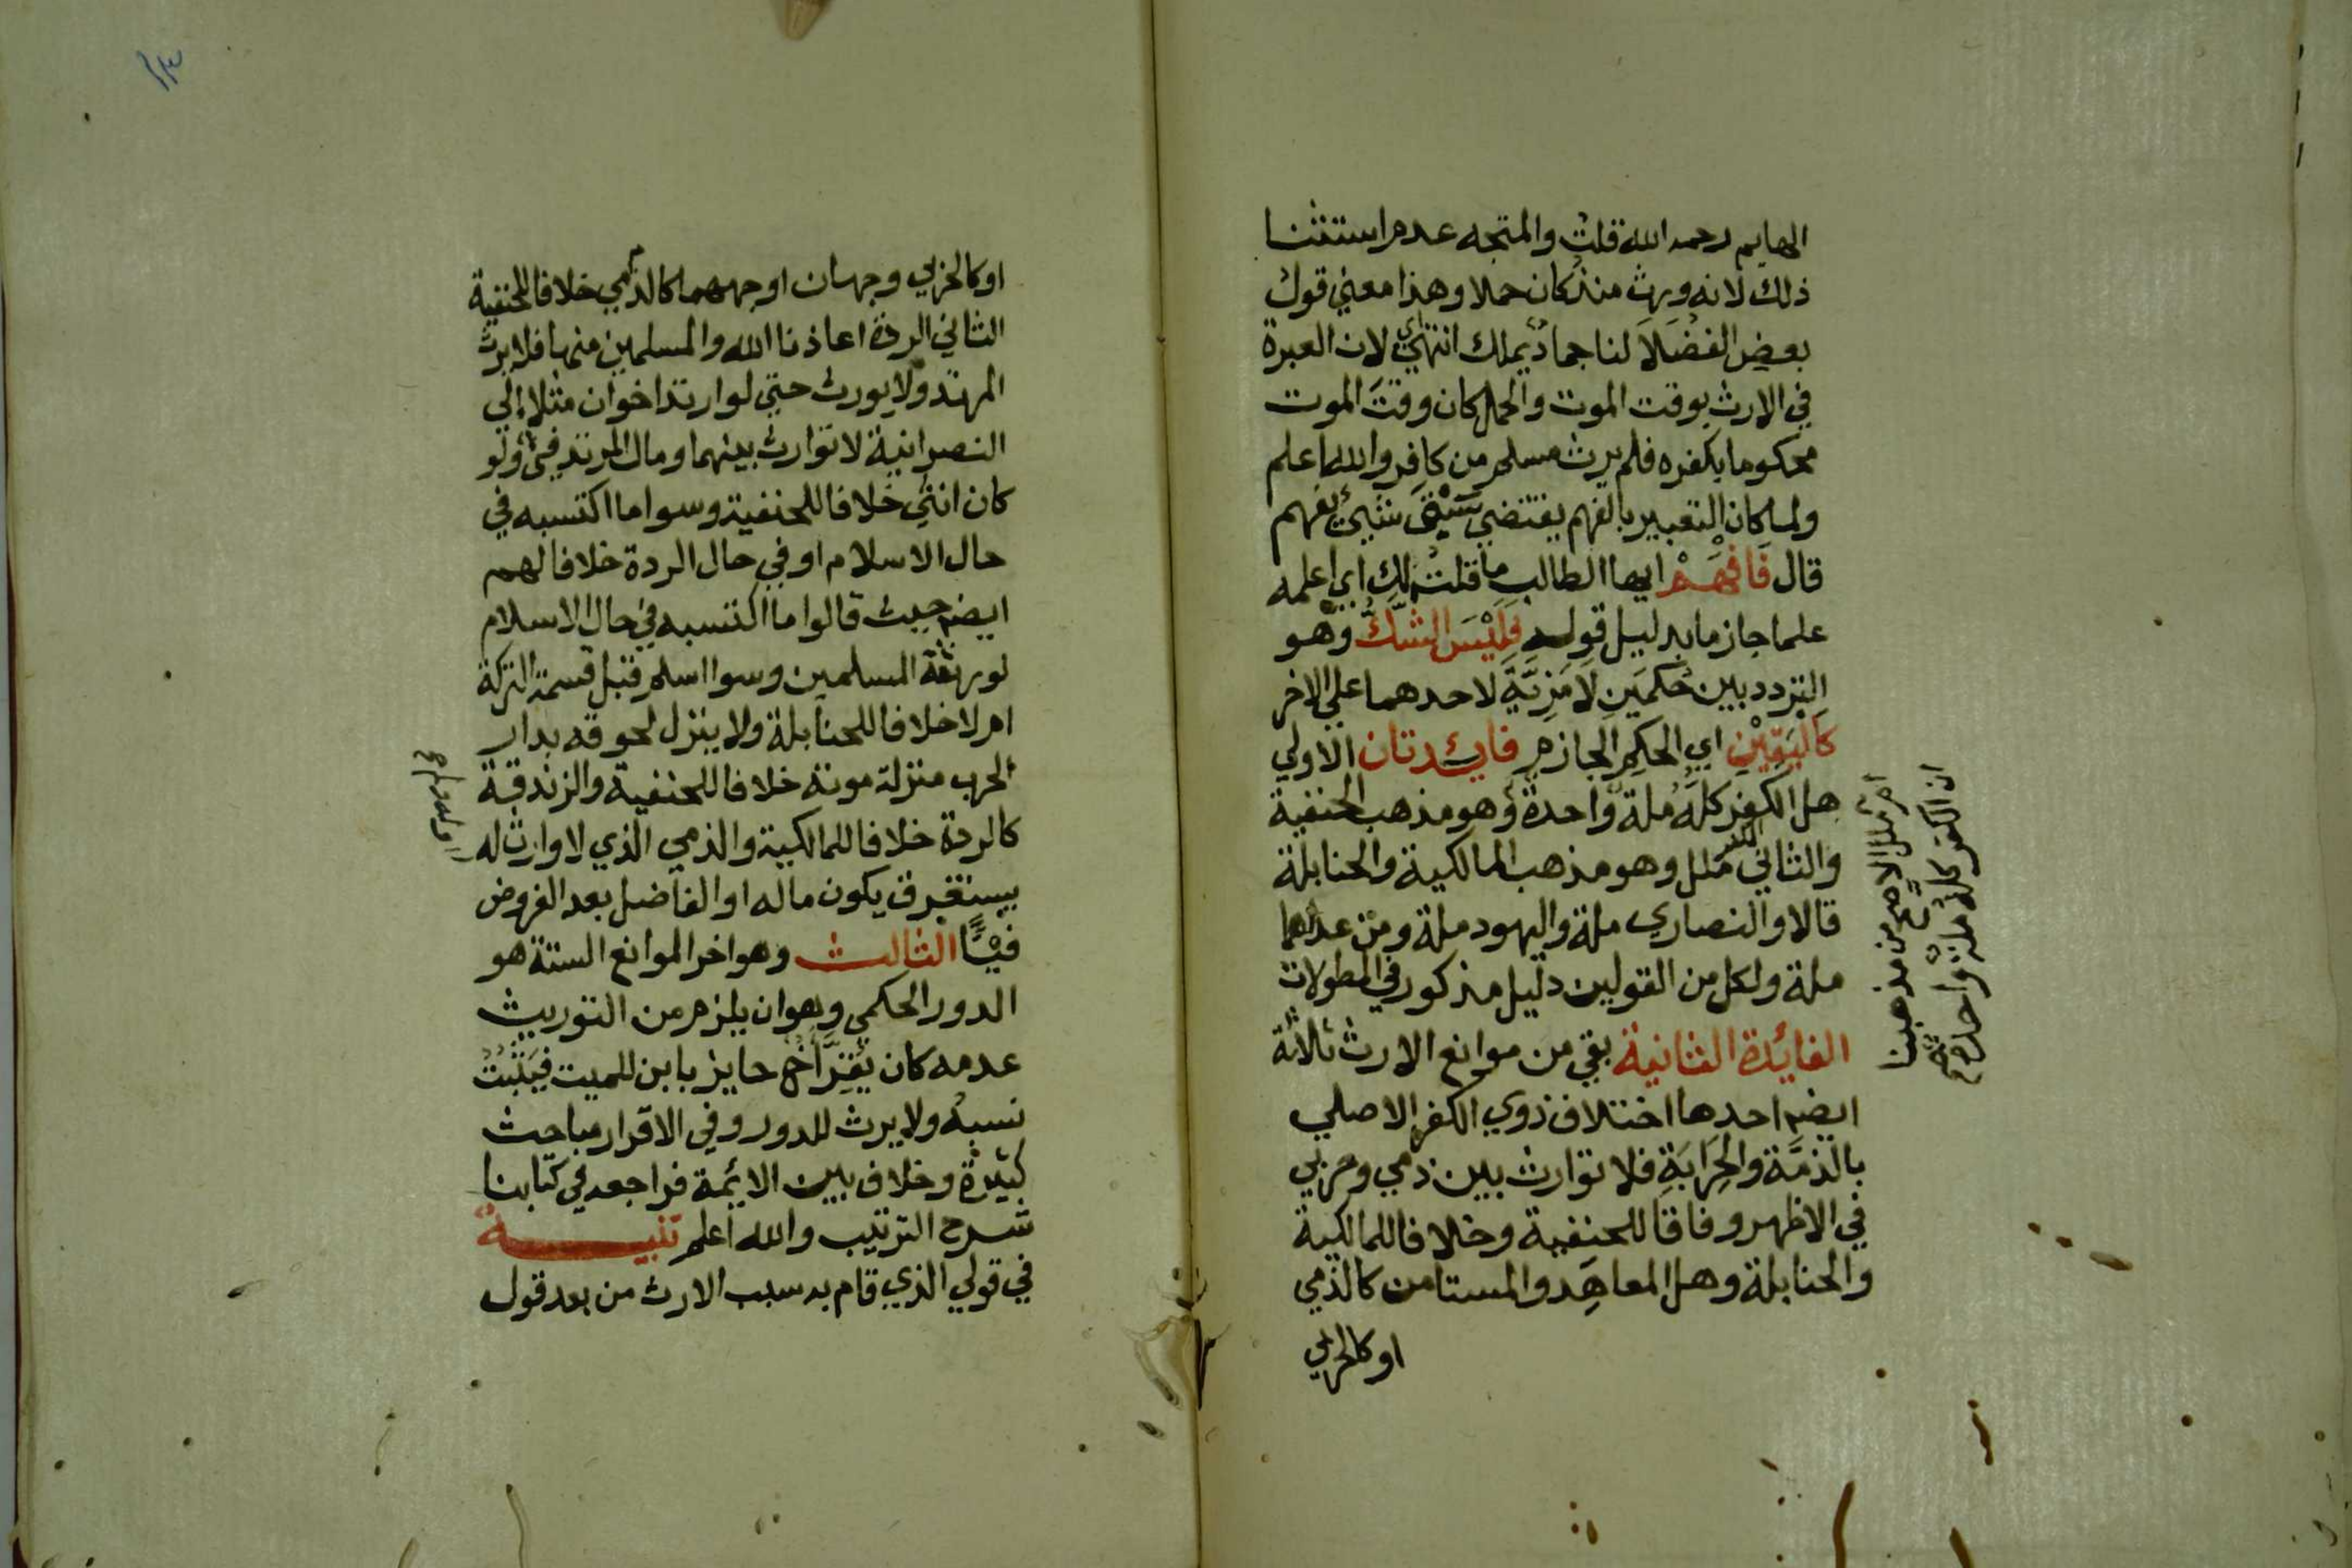 الهايم رحمه الله قلت والمتجه عدم استثنا
ذلك لانه ورث منذ كان حملا وهذا معني قول
بعض الفضلا لنا جماد يملك انتهي اي لان العبرة
في الارث بوقت الموت والحمل كان وقت الموت
محكوما بكفره فلم يرث مسلم من كافر والله اعلم
ولما كان التعبير بالفهم يقتضي سبق شيئ يفهم
قال فَافْهَمْ ايها الطالب ما قلت لك اي اعلمه
علما جازما بدليل قوله فَلَيْسَ الشَّكُّ وهو
التردد بين حُكمَين لَا مَزِيَّةَ لاحدهما علي الاخر
كَاليَقِيْنِ اي الحكم الجازم فايدتان الاولي
هل الكفر كله ملة واحدة وهو مذهب الحنفية
والثاني الكفر ملل وهو مذهب المالكية والحنابلة
قالا والنصاري ملة واليهود ملة ومن عداهما
ملة ولكل من القولين دليل مذكور في المطولات
الفائدة الثانية بقي من موانع الارث ثلاثة
ايضا احدها اختلاف ذوي الكفر الاصلي
بالذمَّة والحِرَابَةِ فلا توارث بين ذمي وحربي
في الاظهر وفاقا للحنفية وخلافا للمالكية
والحنابلة وهل المعاهَد والمستامن كالذمي
او كالحربي
ام ملل الاصح من مذهبنا
ان الكفر كله ملة واحدة
او كالحربي وجهان اوجههما كالذمي خلافا للحنفية
الثاني الردة اعاذنا الله والمسلمين منها فلا يرث
المرتد ولا يورث حتي لو ارتد اخوان مثلا الي
النصرانية لا توارث بينهما ومال المرتد فيئ ولو
كان انثي خلافا للحنفية وسوا ما اكتسبه في
حال الاسلام او في حال الردة خلافا لهم
ايضا حيث قالوا ما اكتسبه في حال الاسلام
لورثته المسلمين وسوا اسلم قبل قسمة التركة
ام لا خلافا للحنابلة ولا ينزل لحوقه بدار
الحرب منزلة موته خلافا للحنفية والزندقة
كالردة خلافا للمالكية والذمي الذي لا وارث له
يستغرق يكون ماله او الفاضل بعد الفروض
فَيْئًا الثالث وهو اخر الموانع الستة هو
الدور الحكمي وهو ان يلزم من التوريث
عدمه كان يُقِرَّ أخ حايز بابن للميت فيَثْبُتُ
نسبه ولا يرث للدور وفي الاقرار مباحث
كثيرة وخلاف بين الايمة فراجعه في كتابنا
شرح الترتيب والله اعلم تنبيه
في قولي الذي قام به سبب الارث من بعد قول